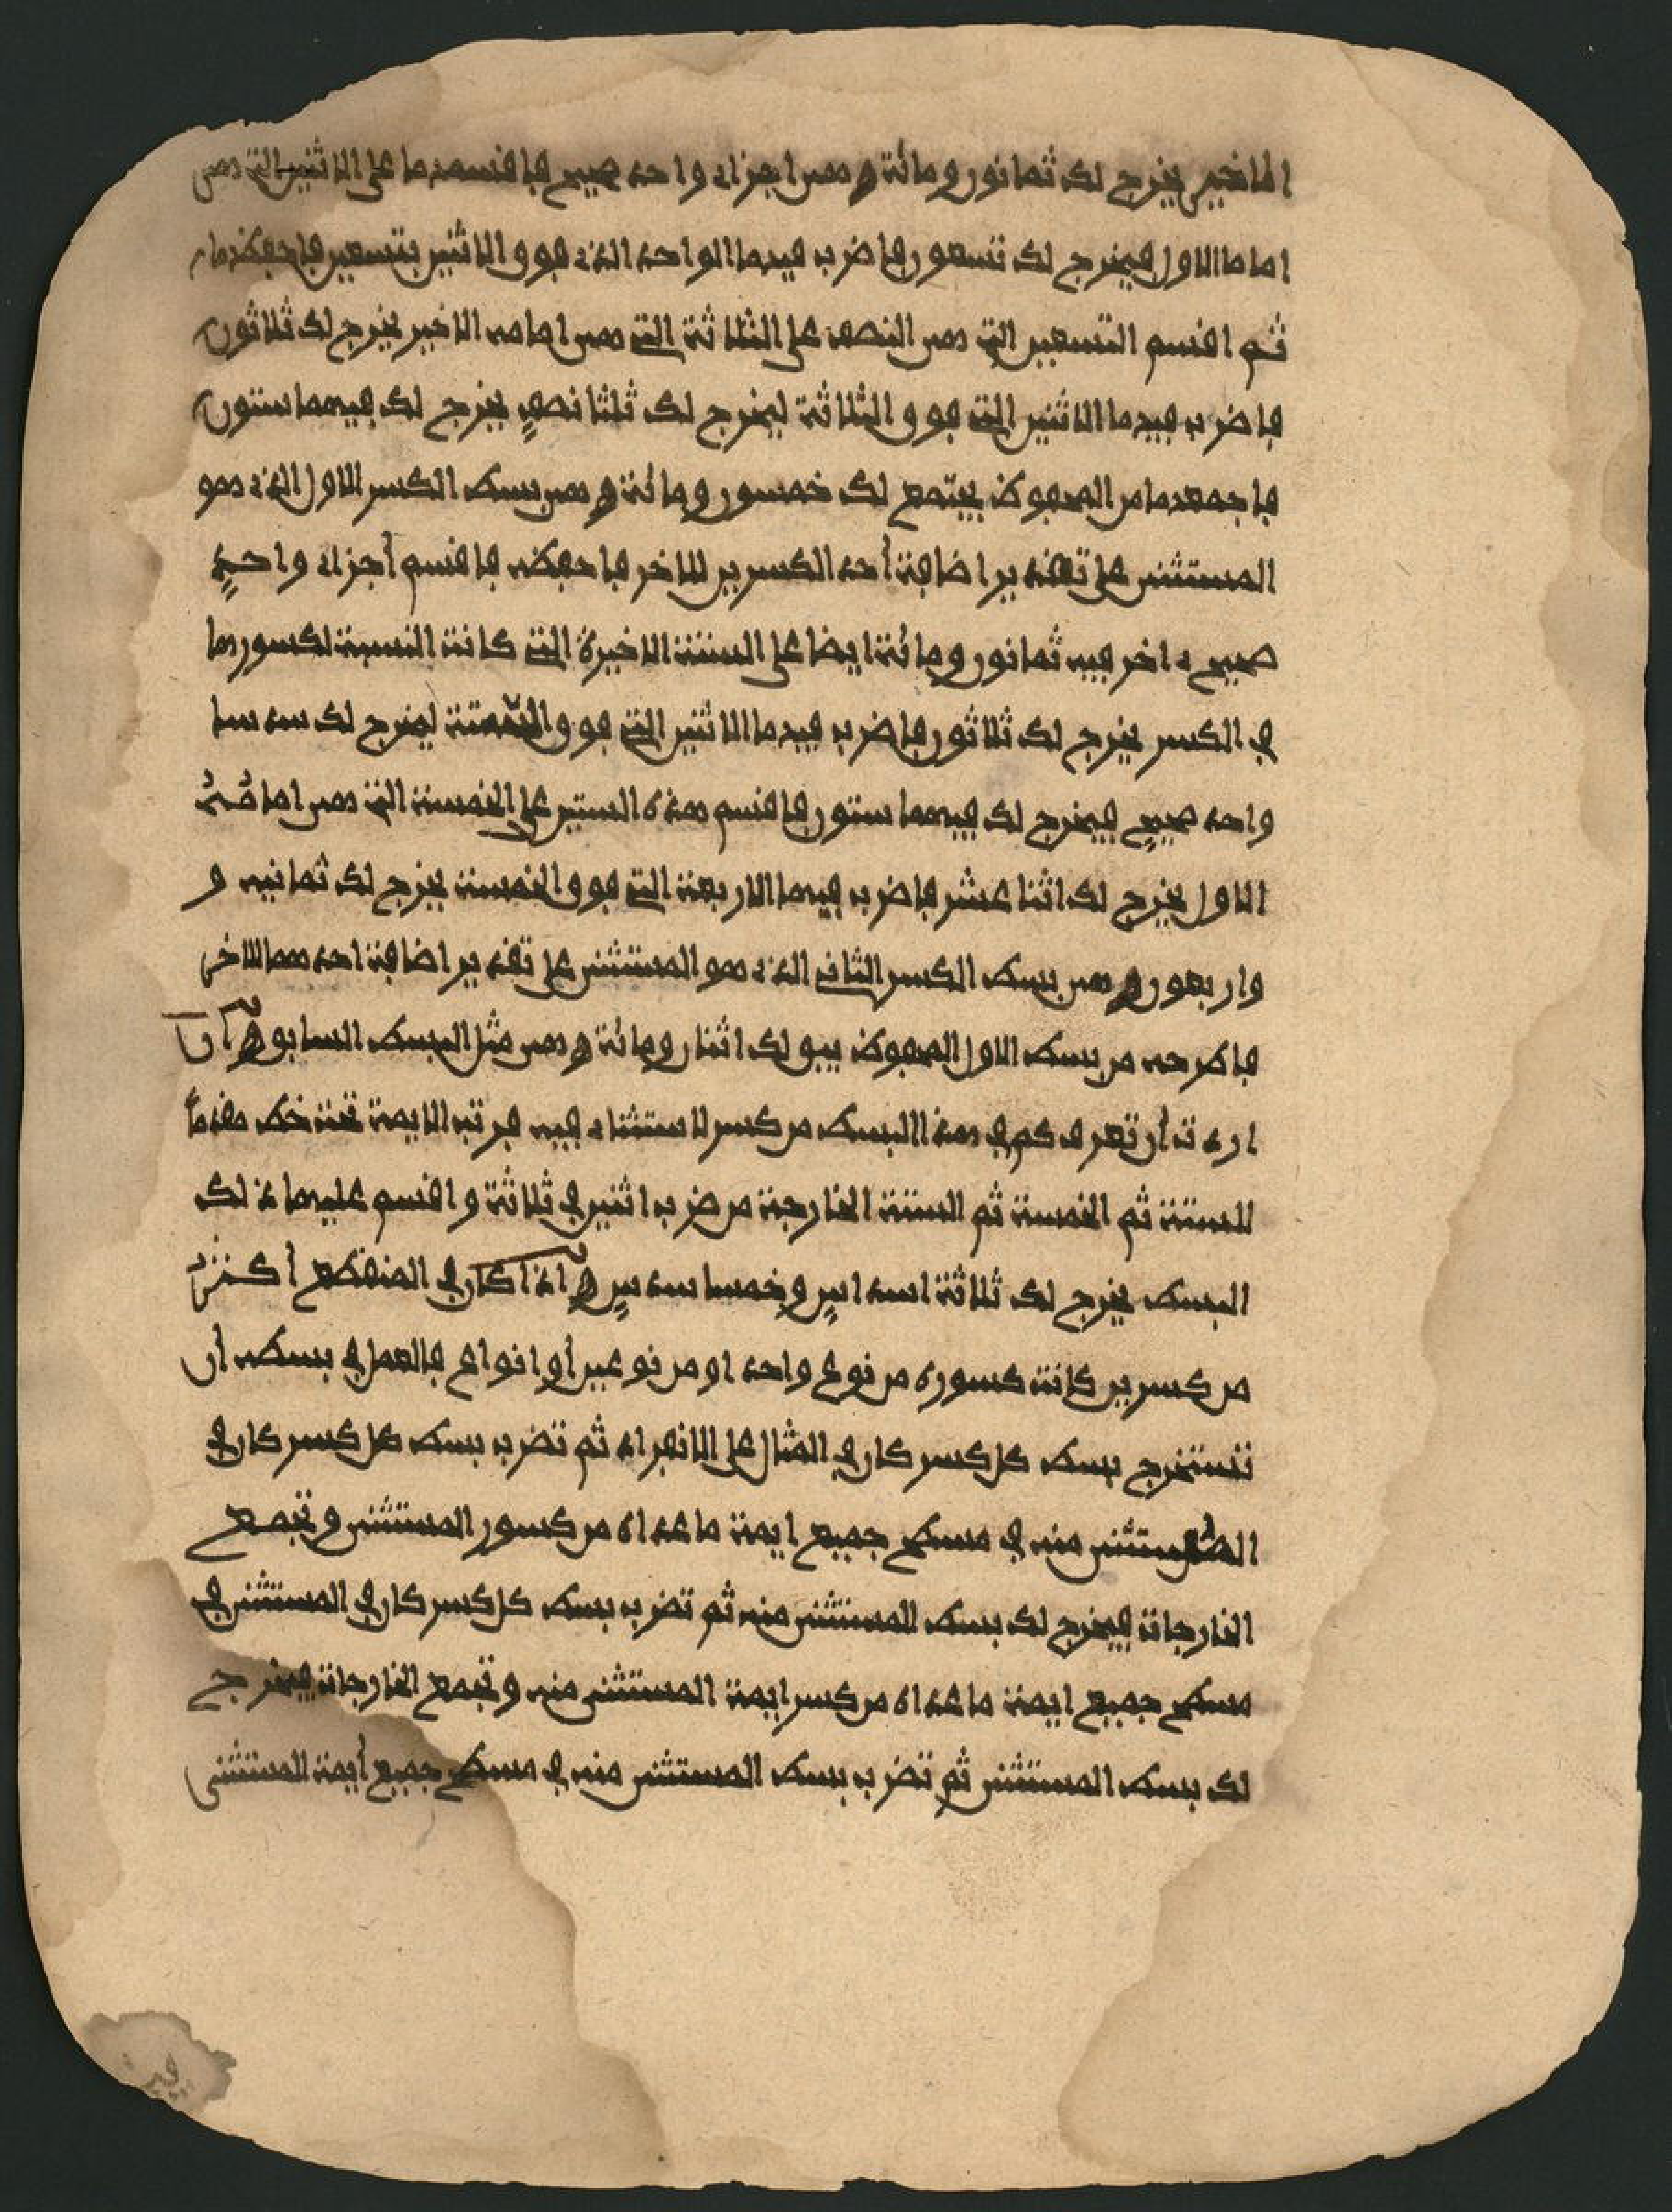 الاخير يخرج لك ثمانون ومائة وهي اجزاء واحد صحيح فاقسمها على الاثنين التي هي
امامها الاول فيخرج لك تسعون فاضرب فيها الواحد الذي فوق الاثنين بتسعين فاحفظها
ثم اقسم التسعين التي هي النصف على الثلاثة التي هي امامه الاخير يخرج لك ثلاثون
فاضرب فيها الاثنين التي فوق الثلاثة ليخرج لك ثلثا نصف يخرج لك فيهما ستون
فاجمعها من المحفوظ يجتمع لك خمسون ومائة وهي بسط الكسر الاول الذي هو
المستثنى على تقدير اضافة أحد الكسرين للاخر فاحفظه فاقسم أجزاء واحد
صحيح ء اخر فيه ثمانون ومائة ايضا على الستة الاخيرة التي كانت النسبة لكسورها
في الكسر يخرج لك ثلاثون فاضرب فيها الاثنين التي فوق الستة ليخرج لك سدسا
واحد صحيح فيخرج لك فيهما ستون فاقسم هذه الستين على الخمسة التي هي امامه
الاول يخرج لك اثنا عشر فاضرب فيها الاربعة التي فوق الخمسة يخرج لك ثمانيه و
واربعون وهي بسط الكسر الثاني الذي هو المستثنى على تقدير اضافة احدهما للاخر
فاطرحه من بسط الاول المحفوظ يبق لك اثنان ومائة وهي مثل البسط السابق وان
اردت أن تعرف كم في هذا البسط من كسر لا استثناء فيه فرتب الايمة تحت خط مقدما
للستة ثم الخمسة ثم الستة الخارجة من ضرب اثنين في ثلاثة واقسم عليها ذلك
البسط يخرج لك ثلاثة اسداس وخمسا سدس واذا كان في المنقطع أكثر
من كسرين كانت كسوره من نوع واحد او من نوعين أو انواع فالعمل في بسطه أن
تستخرج بسط كل كسر كان في المثال على الانفراد ثم تضرب بسط كل كسر كان في
المستثنى منه في مسطح جميع ايمة ما عداه من كسور المستثنى وتجمع
الخارجات فيخرج لك بسط المستثنى منه ثم تضرب بسط كل كسر كان في المستثنى في
مسطح جميع ايمة ما عداه من كسر ايمة المستثنى منه وتجمع الخارجات فيخرج
لك بسط المستثنى ثم تضرب بسط المستثنى منه في مسطح جميع أيمة المستثنى